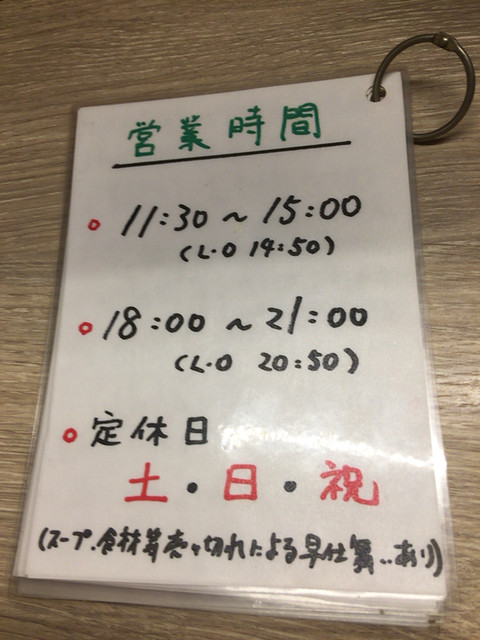 営業時間
○ 11:30 ~ 15:00
(L・O 14:50)
○ 18:00 ~ 21:00
(L・O 20:50)
○ 定休日
土・日・祝
(スープ、食材等売り切れによる早仕舞..あり)